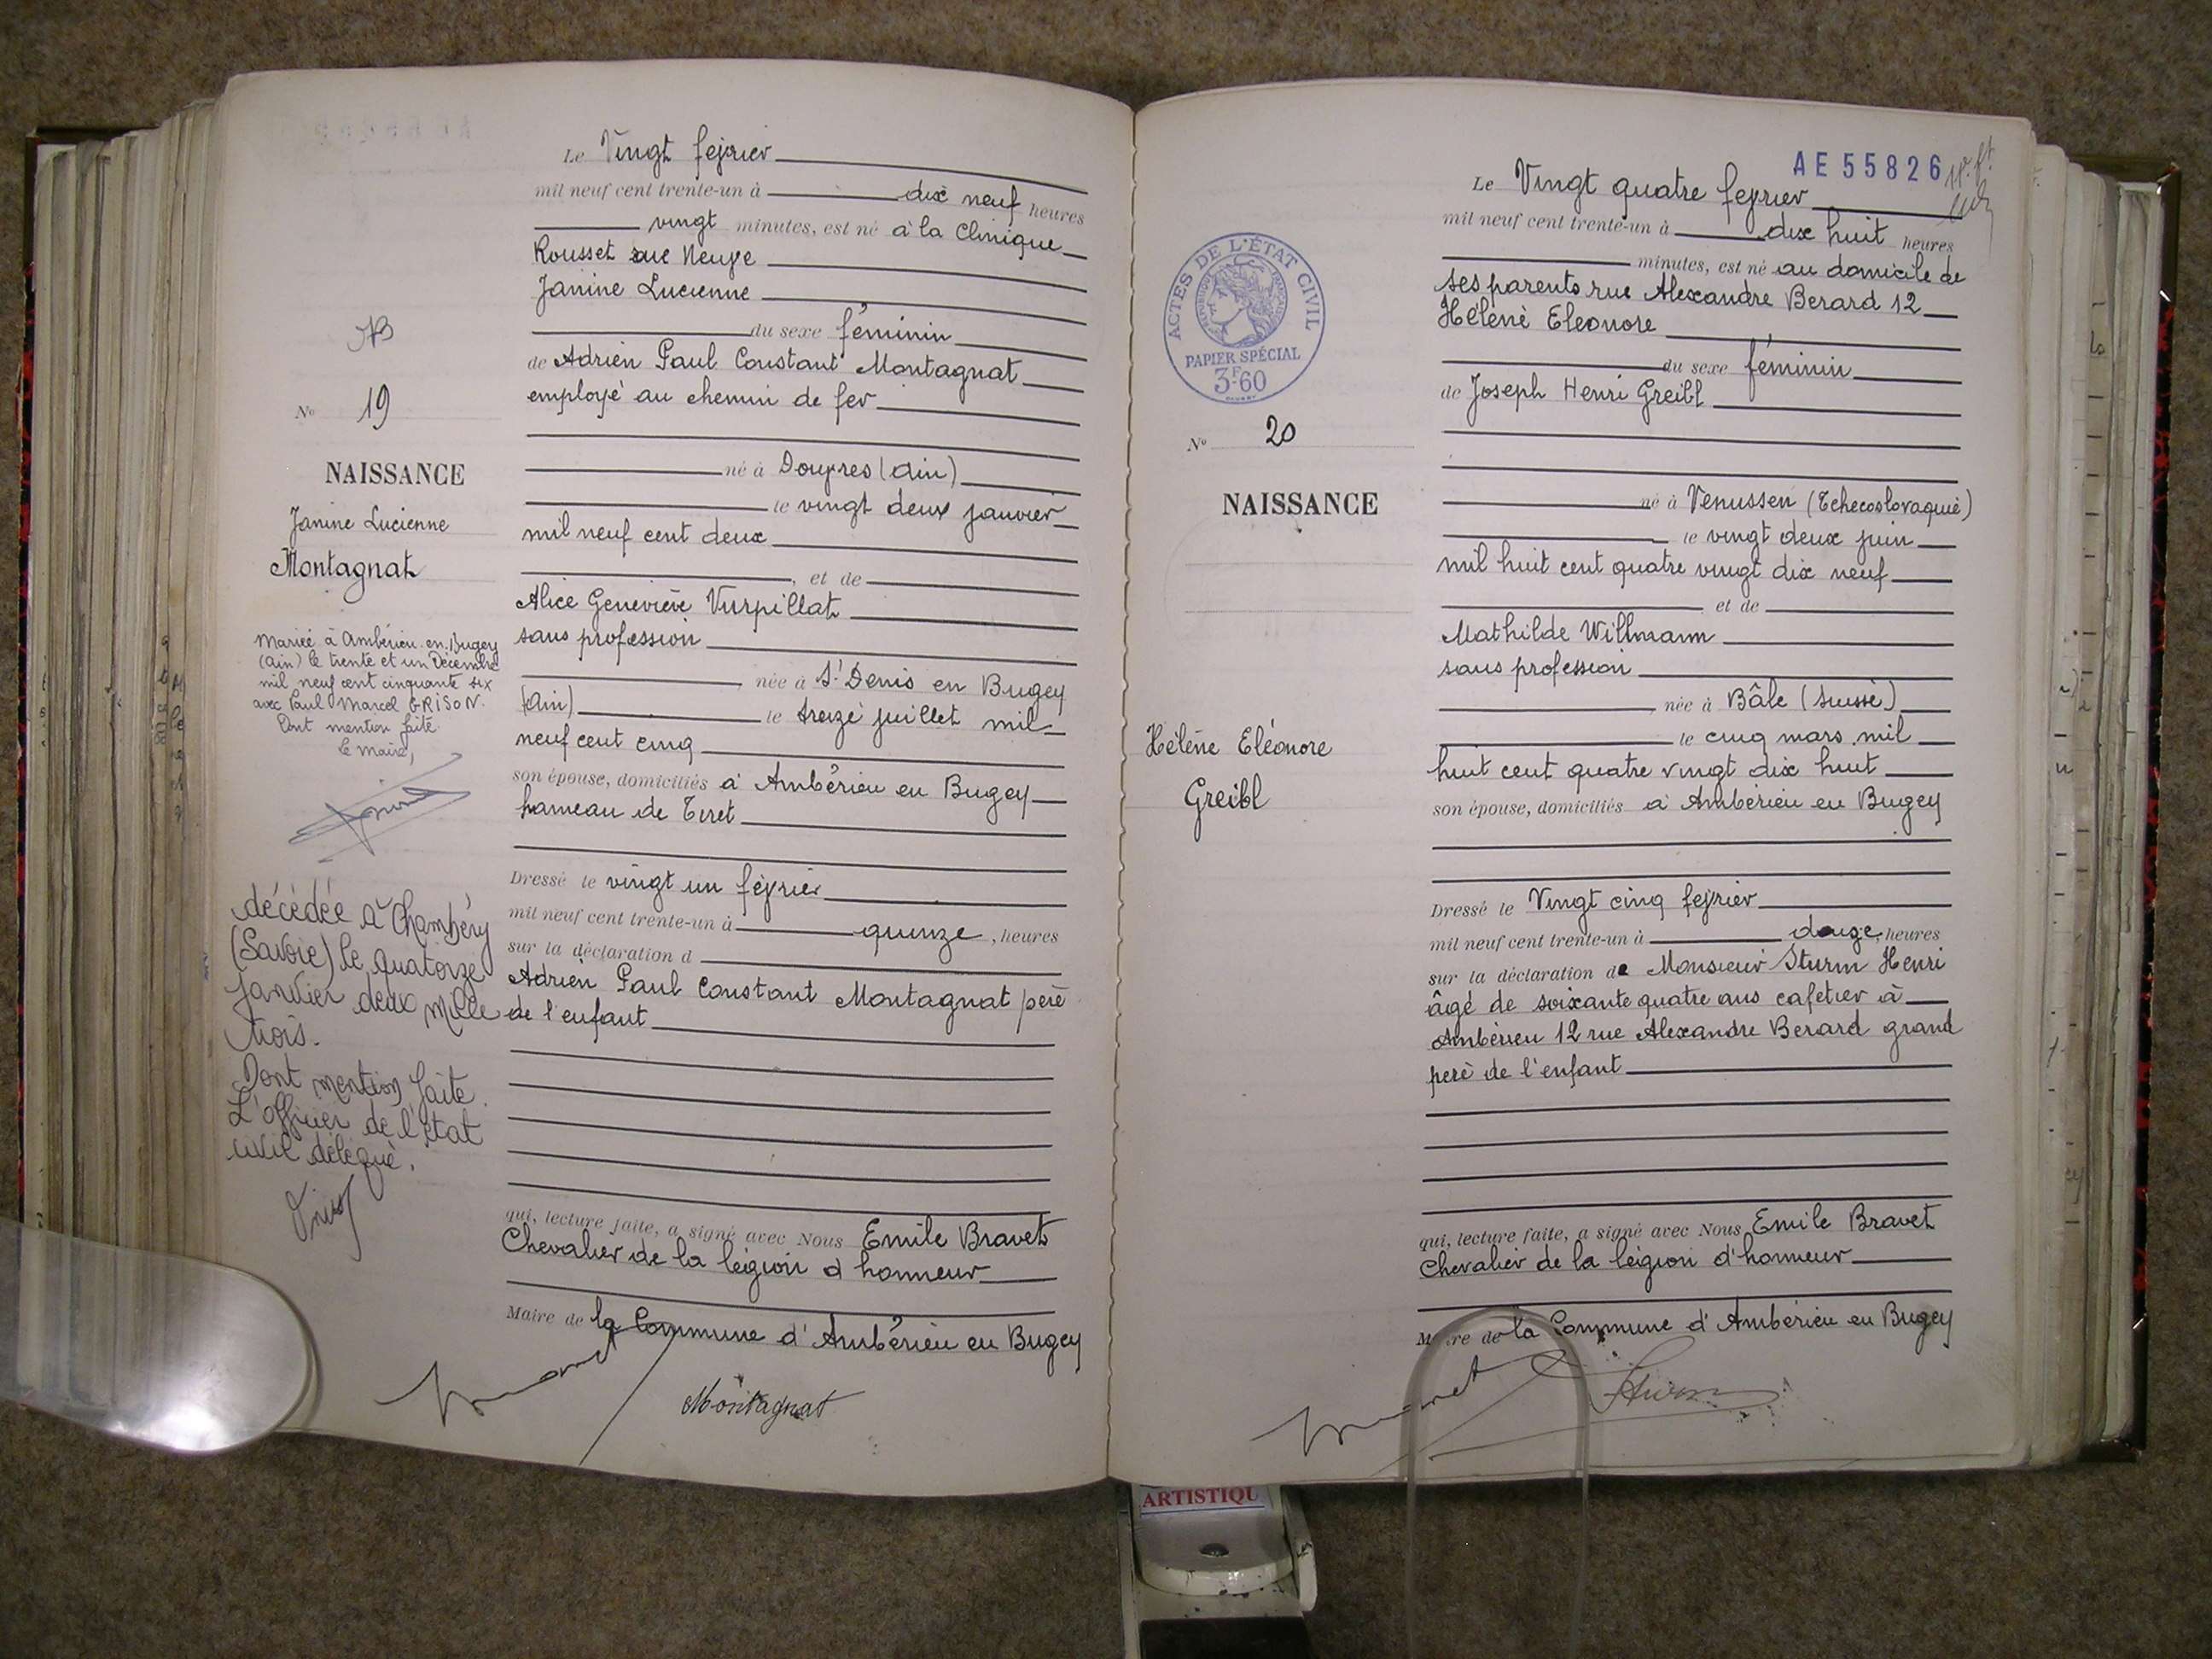 Le Vingt février
mil neuf cent trente-un à dix neuf heures
vingt minutes, est né à la Clinique
Rousset rue Neuve
Janine Lucienne
du sexe féminin
de Adrien Paul Constant Montagnat
employé au chemin de fer
né à Douvres (Ain)
le vingt deux janvier
mil neuf cent deux
, et de
Alice Geneviève Vurpillat
sans profession
née à St Denis en Bugey
(Ain) le treize juillet mil
neuf cent cinq
son épouse, domiciliés à Ambérieu en Bugey
hameau de Tiret
Dressé le vingt un février
mil neuf cent trente-un à quinze, heures
sur la déclaration d
Adrien Paul Constant Montagnat père
de l'enfant
qui, lecture faite, a signé avec Nous Emile Bravet
Chevalier de la légion d'honneur
Maire de la Commune d'Ambérieu en Bugey
Montagnat
No 19
NAISSANCE
Janine Lucienne
Montagnat
Mariée à Ambérieu-en-Bugey
(Ain) le trente et un Décembre
mil neuf cent cinquante six
avec Paul Marcel GRISON.
Dont mention faite.
le maire,
décédée à Chambéry
(Savoie) le quatorze
janvier deux mille
trois.
Dont mention faite.
L'officier de l'état
civil délégué.
AE 55826
Le Vingt quatre février
mil neuf cent trente-un à dix huit heures
minutes, est né au domicile de
ses parents rue Alexandre Berard 12
Hélène Eleonore
du sexe féminin
de Joseph Henri Greibl
né à Venussen (Tchecoslovaquie)
le vingt deux juin
mil huit cent quatre vingt dix neuf
et de
Mathilde Willmann
sans profession
, née à Bâle (Suisse)
le cinq mars mil
huit cent quatre vingt dix huit
son épouse, domiciliés à Ambérieu en Bugey
Dressé le Vingt cinq février
mil neuf cent trente-un à douze, heures
sur la déclaration de Monsieur Sturm Henri
âgé de soixante quatre ans cafetier à
Ambérieu 12 rue Alexandre Berard grand
père de l'enfant
qui, lecture faite, a signé avec Nous Emile Bravet
Chevalier de la légion d'honneur
Maire de la Commune d'Ambérieu en Bugey
ACTES DE L'ÉTAT CIVIL
PAPIER SPÉCIAL
3F60
No 20
NAISSANCE
Hélène Eléonore
Greibl
ARTISTIQU